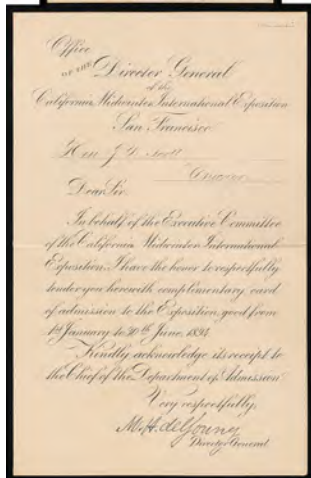 Office
OF THE Director General
of the
California Midwinter International Exposition
San Francisco
Hon. J. Scott
Dear Sir.
In behalf of the Executive Committee
of the California Midwinter International
Exposition, I have the honor to respectfully
tender you herewith complimentary card
of admission to the Exposition, good from
1st January to 30th June, 1894.
Kindly acknowledge its receipt to
the Chief of the Department of Admission.
Very respectfully,
M. H. de Young
Director General